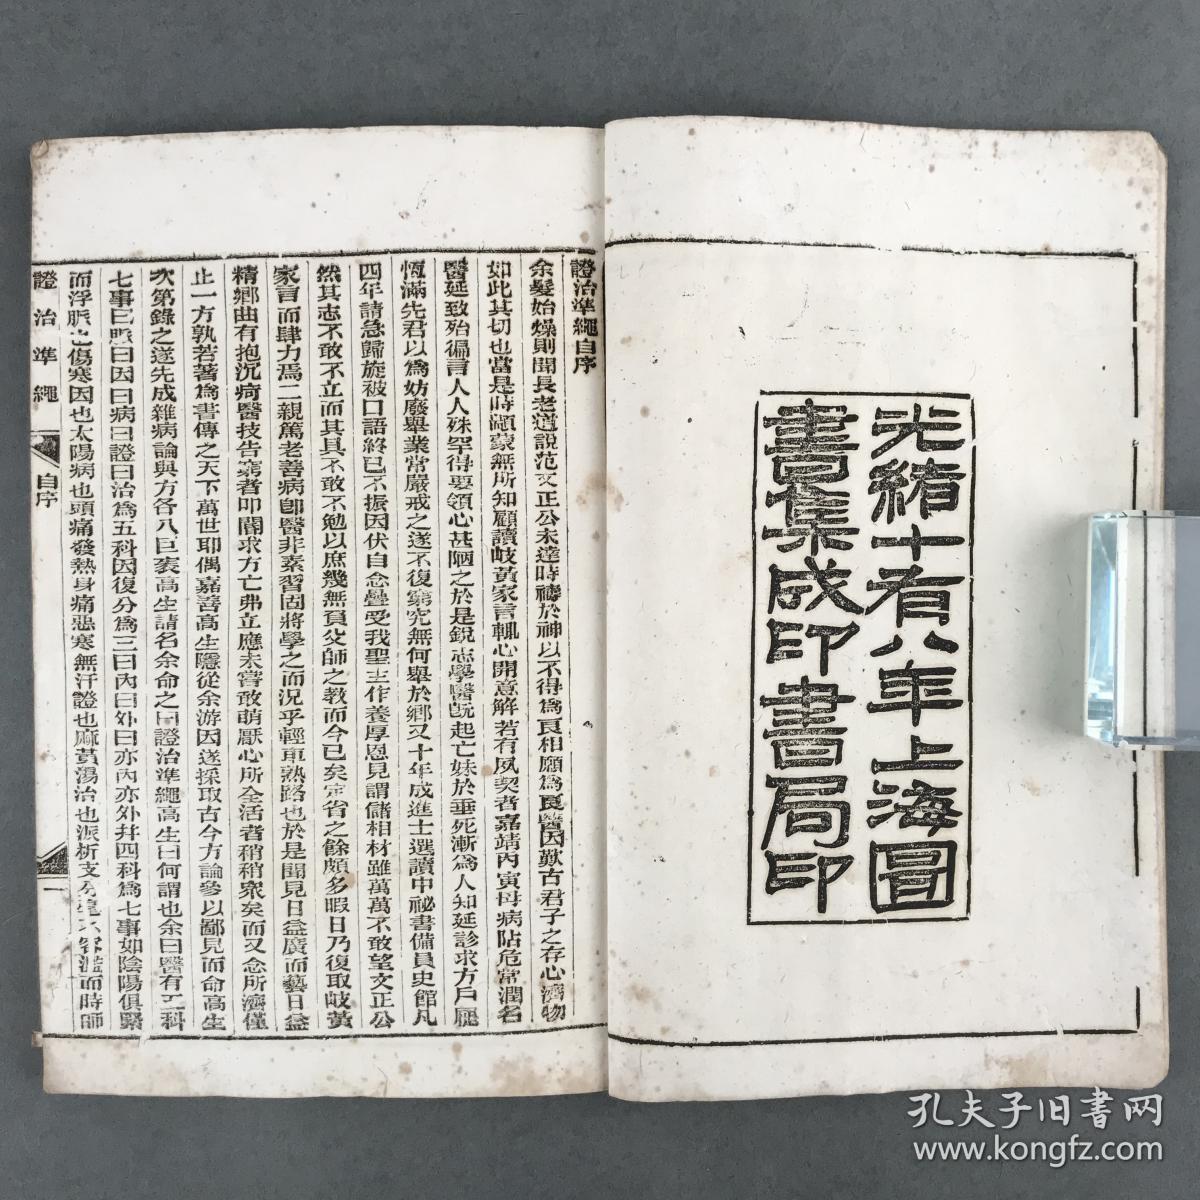 光緒十有八年上海圖
書集成印書局印
證治準繩自序
余髮始燥則聞長老道說范文正公未達時禱於神以不得為良相願為良醫因歎古君子之存心濟物
如此其切也當是時顓蒙無所知顧讀岐黃家言輒心開意解若有夙契者嘉靖丙寅母病阽危常潤名
醫延致殆徧言人人殊罕得要領心甚陋之於是銳志學醫旣起亡妹於垂死漸為人知延診求方戶屨
恆滿先君以為妨廢舉業常嚴戒之遂不復窮究無何舉於鄉又十年成進士選讀中祕書備員史館凡
四年請急歸旋被口語終已不振因伏自念曡受我聖主作養厚恩見謂儲相材雖萬萬不敢望文正公
然其志不敢不立而其具不敢不勉以庶幾無負父師之教而今已矣定省之餘頗多暇日乃復取岐黃
家言而肆力焉二親篤老善病卽醫非素習固將學之而況乎輕車熟路也於是聞見日益廣而藝日益
精鄉曲有抱沉疴醫技告窮者叩閽求方亡弗立應未嘗敢萌厭心所全活者稍稍衆矣而又念所濟僅
止一方孰若著為書傳之天下萬世耶偶嘉善高生隱從余游因遂採取古今方論參以鄙見而命高生
次第錄之遂先成雜病論與方各八巨袠高生請名余命之曰證治準繩高生曰何謂也余曰醫有五科
七事曰脈曰因曰病曰證曰治為五科因復分為三曰內曰外曰亦內亦外并四科為七事如陰陽俱緊
而浮脈也傷寒因也太陽病也頭痛發熱身痛惡寒無汗證也麻黃湯治也派析支分毫不容濫而時師
證治準繩
自序
一
孔夫子旧書网
www.kongfz.com